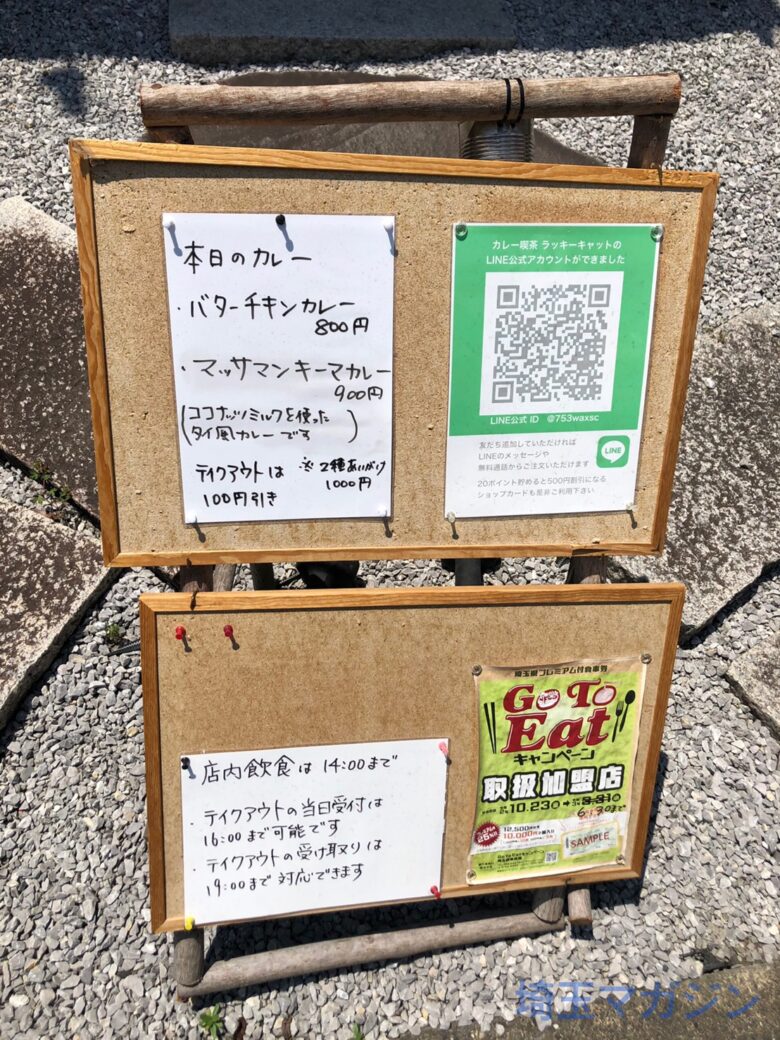 本日のカレー
・バターチキンカレー
800円
・マッサマンキーマカレー
900円
(ココナッツミルクを使った
タイ風カレーです)
テイクアウトは
100円引き
※2種あいがけ
1000円
カレー喫茶 ラッキーキャットの
LINE公式アカウントができました
LINE公式 ID @753waxsc
友だち追加していただければ
LINEのメッセージや
無料通話からご注文いただけます
LINE
20ポイント貯めると500円割引になる
ショップカードも是非ご利用下さい
店内飲食は14:00まで
・テイクアウトの当日受付は
16:00まで可能です
・テイクアウトの受け取りは
19:00まで対応できます
埼玉県プレミアム付食事券
Go To
Eat
キャンペーン
取扱加盟店
10.23
12,500
10,000
SAMPLE
埼玉マガジン